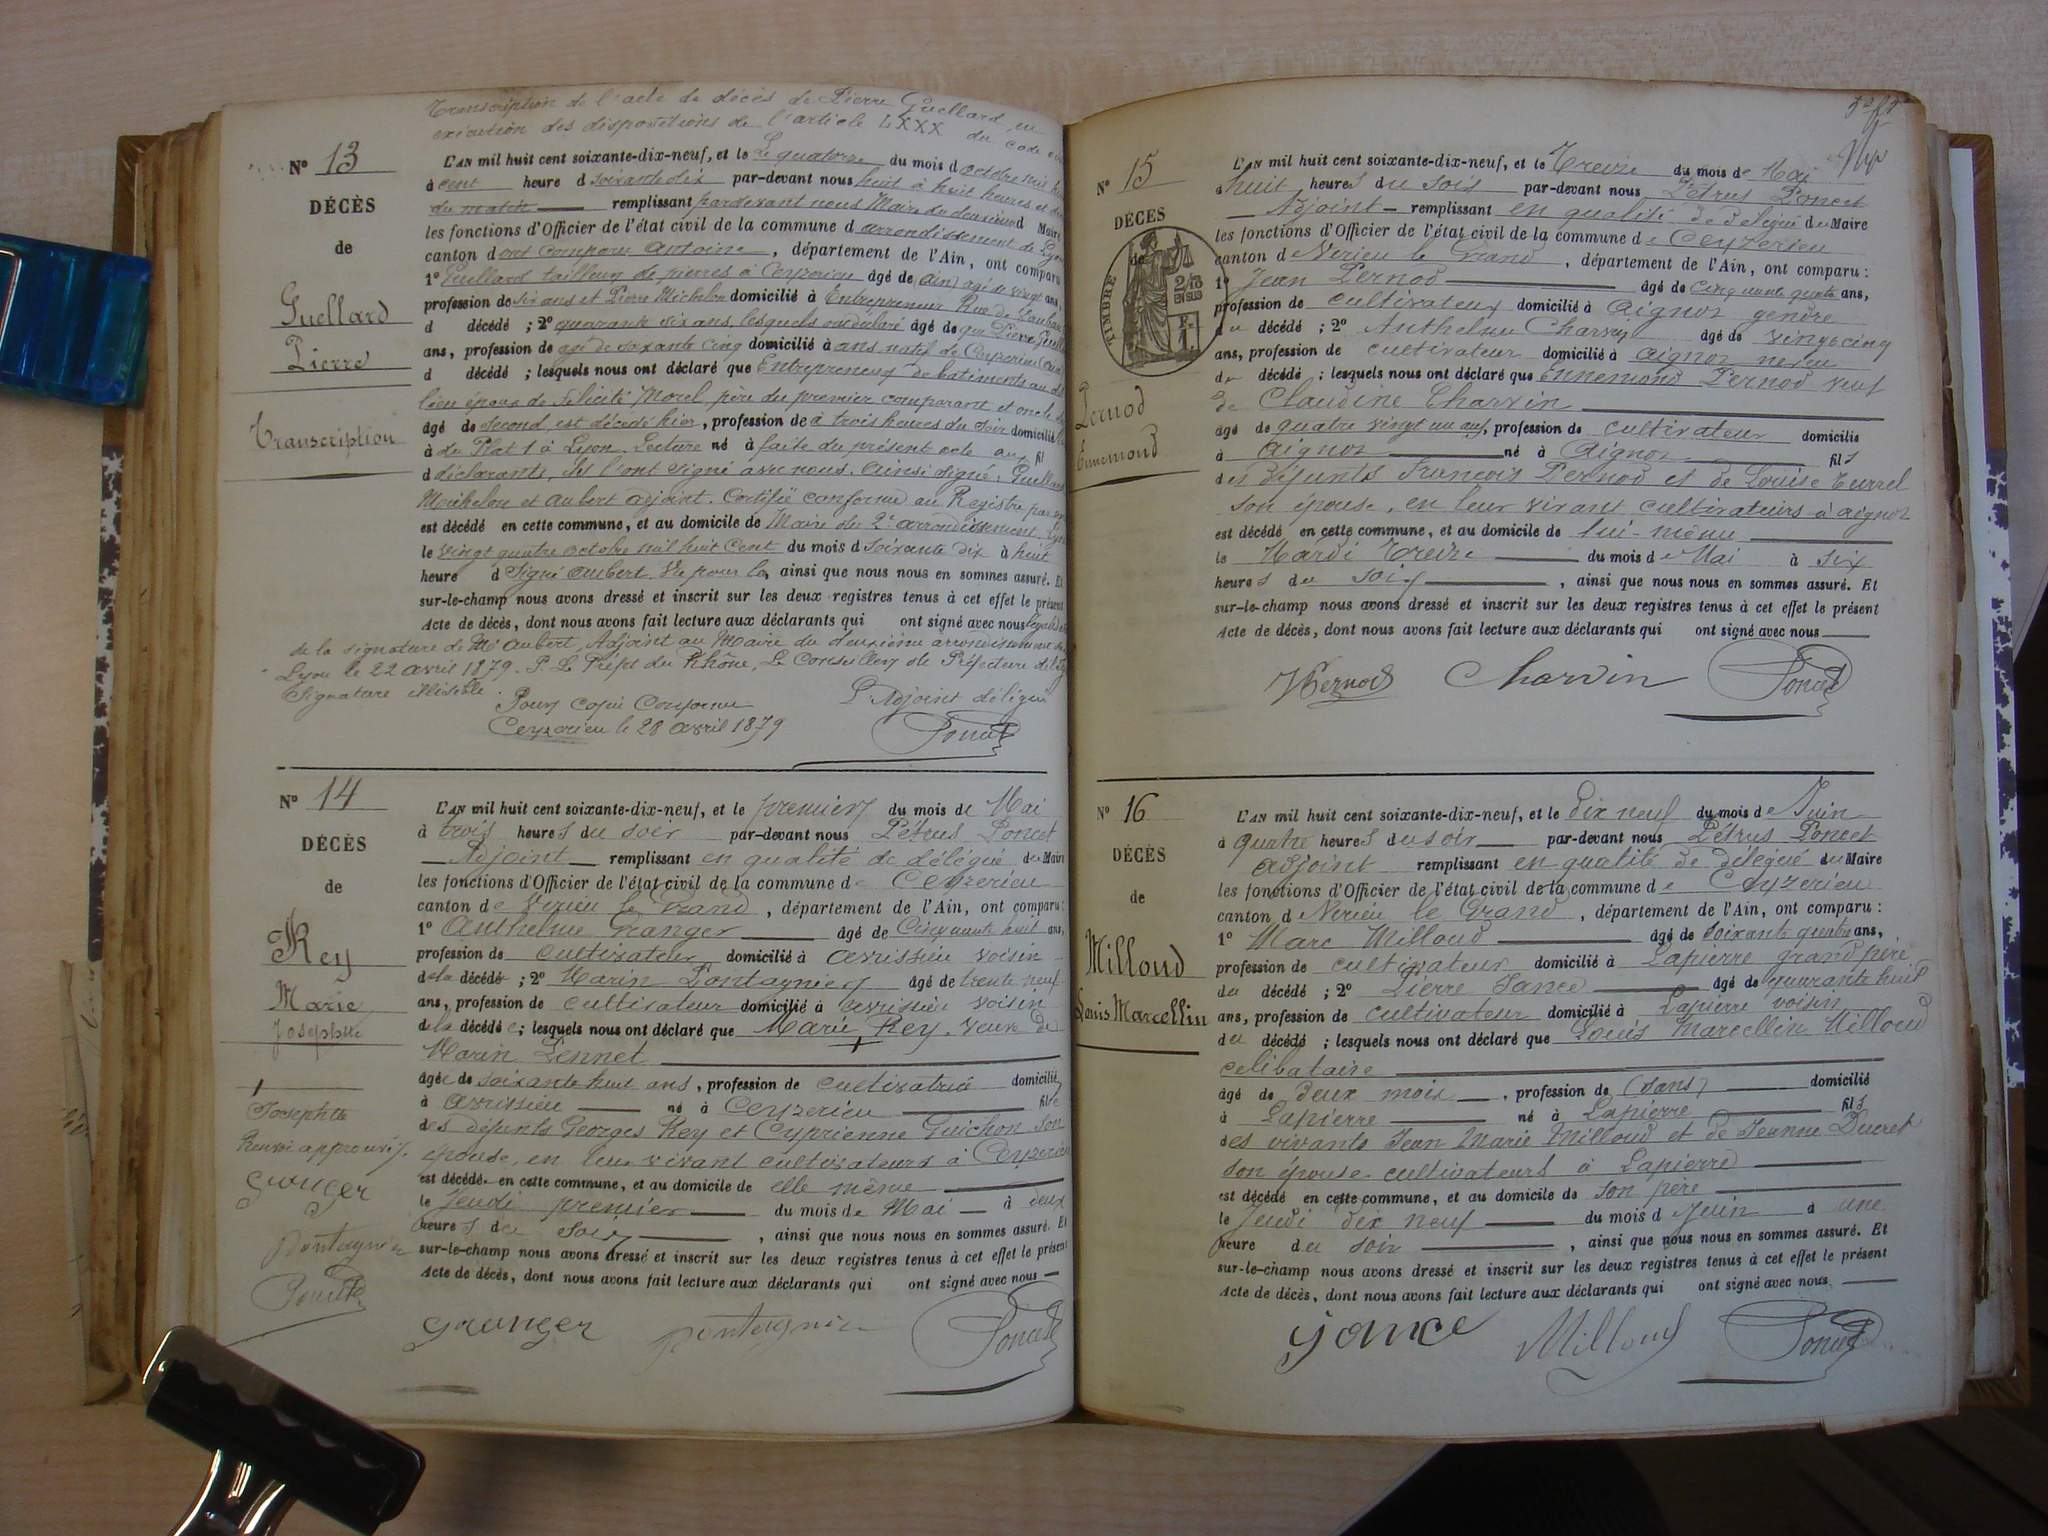 Transcription de l'acte de décès de Pierre Guellard, en
exécution des dispositions de l'article LXXX du code
No 13
DÉCÈS
de
Guellard
Pierre
Transcription
L'AN mil huit cent soixante-dix-neuf, et le Le quatorze du mois d octobre mil h
à cent heure d soixante dix par-devant nous huit à huit heures et
du matin remplissant pardevant nous Maire du deuxième d Maire
les fonctions d'Officier de l'état civil de la commune d arrondissement de Lyon
canton d ont comparu Antoine , département de l'Ain, ont comparu
1o Guellard tailleur de pierres à Ceyzerieu âgé de (Ain) agé de vingt ans,
profession de six ans et Pierre Michelon domicilié à Entrepreneur Rue de
d décédé ; 2o quarante six ans, lesquels ont déclaré âgé de que Pierre Guell
ans, profession de agé de soixante cinq domicilié à ans natif de Ceyzerieu
d décédé ; lesquels nous ont déclaré que Entrepreneur de batiments au dit
lieu époux de Félicité Morel, père du premier comparant et oncle du
âgé de second, est décédé hier, profession de à trois heures du soir domicilié
à du Plat 1 à Lyon. Lecture né à faite du présent acte aux fil
d déclarants, ils l'ont signé avec nous. Ainsi signé: Guellard
Michelon et Aubert adjoint. Certifié conforme au Registre par
est décédé en cette commune, et au domicile de Maire du 2e arrondissement Lyon
le vingt quatre octobre mil huit cent du mois d soixante dix à huit
heure d Signé Aubert. Vu pour la, ainsi que nous nous en sommes assuré. Et
sur-le-champ nous avons dressé et inscrit sur les deux registres tenus à cet effet le présent
Acte de décès, dont nous avons fait lecture aux déclarants qui ont signé avec nous
de la signature de Mr Aubert, Adjoint au Maire du deuxième arrondissement de
Lyon le 22 avril 1879. P. Le Préfet du Rhône, Le Conseiller de Préfecture délég
Signature illisible.
Pour copie Conforme
L'Adjoint délégué
Ceyzerieu le 28 avril 1879
Poncet
No 14
DÉCÈS
de
Rey
Marie
Josephte
Josephte
Renvoi approuvé
Granger
Pontagnier
Poncet
L'AN mil huit cent soixante-dix-neuf, et le premier du mois de Mai
à trois heures du soir par-devant nous Pétrus Poncet
Adjoint remplissant en qualité de délégué du Maire
les fonctions d'Officier de l'état civil de la commune de Ceyzerieu
canton de Virieu le Grand , département de l'Ain, ont comparu :
1o Anthelme Granger âgé de Cinquante huit ans,
profession de cultivateur domicilié à avrissieu voisin
de la décédé ; 2o Marin Pontagnier âgé de trente neuf
ans, profession de cultivateur domicilié à avrissieu voisin
de la décédée ; lesquels nous ont déclaré que Marie Rey, veuve de
Marin Lennet
âgée de soixante huit ans , profession de cultivatrice domicilié
à avrissieu né à Ceyzerieu fille
des défunts Georges Rey et Cyprienne Guichon son
épouse, en leur vivant cultivateurs à Ceyzerieu
est décédé en cette commune, et au domicile de elle même
le Jeudi premier du mois de Mai à deux
heures du soir , ainsi que nous nous en sommes assuré. Et
sur-le-champ nous avons dressé et inscrit sur les deux registres tenus à cet effet le présent
Acte de décès, dont nous avons fait lecture aux déclarants qui ont signé avec nous
Granger Pontagnier Poncet
No 15
DÉCÈS
de
TIMBRE
2/10
EN SUS
Pernod
Ennemond
L'AN mil huit cent soixante-dix-neuf, et le Treize du mois de Mai
à huit heures du soir par-devant nous Pétrus Poncet
Adjoint remplissant en qualité de délégué du Maire
les fonctions d'Officier de l'état civil de la commune de Ceyzerieu
canton d Virieu le Grand , département de l'Ain, ont comparu :
1o Jean Pernod âgé de cinquante quatre ans,
profession de cultivateur domicilié à Aignoz gendre
du décédé ; 2o Anthelme Charvin âgé de vingt cinq
ans, profession de cultivateur domicilié à aignoz neveu
du décédé ; lesquels nous ont déclaré que Ennemond Pernod veuf
de Claudine Charvin
âgé de quatre vingt un ans, profession de cultivateur domicilié
à Aignoz né à Aignoz fils
des défunts François Pernod et de Louise Turrel
son épouse, en leur vivant cultivateurs à aignoz
est décédé en cette commune, et au domicile de lui-même
le Mardi treize du mois de Mai à six
heures du soir , ainsi que nous nous en sommes assuré. Et
sur-le-champ nous avons dressé et inscrit sur les deux registres tenus à cet effet le présent
Acte de décès, dont nous avons fait lecture aux déclarants qui ont signé avec nous
JPernod Charvin Poncet
No 16
DÉCÈS
de
Milloud
Louis Marcellin
L'AN mil huit cent soixante-dix-neuf, et le dix neuf du mois de Juin
à quatre heures du soir par-devant nous Pétrus Poncet
adjoint remplissant en qualité de délégué du Maire
les fonctions d'Officier de l'état civil de la commune de Ceyzerieu
canton d Virieu le Grand , département de l'Ain, ont comparu :
1o Marc Milloud âgé de soixante quatre ans,
profession de cultivateur domicilié à Lapierre grand père
du décédé ; 2o Pierre Jance âgé de quarante huit
ans, profession de cultivateur domicilié à Lapierre voisin
du décédé ; lesquels nous ont déclaré que Louis Marcellin Milloud
célibataire
âgé de deux mois , profession de (sans) domicilié
à Lapierre né à Lapierre fils
des vivants Jean Marie Milloud et de Jeanne Ducret
son épouse cultivateurs à Lapierre
est décédé en cette commune, et au domicile de son père
le Jeudi dix neuf du mois d Juin à une
heure du soir , ainsi que nous nous en sommes assuré. Et
sur-le-champ nous avons dressé et inscrit sur les deux registres tenus à cet effet le présent
Acte de décès, dont nous avons fait lecture aux déclarants qui ont signé avec nous
Jance Milloud Poncet